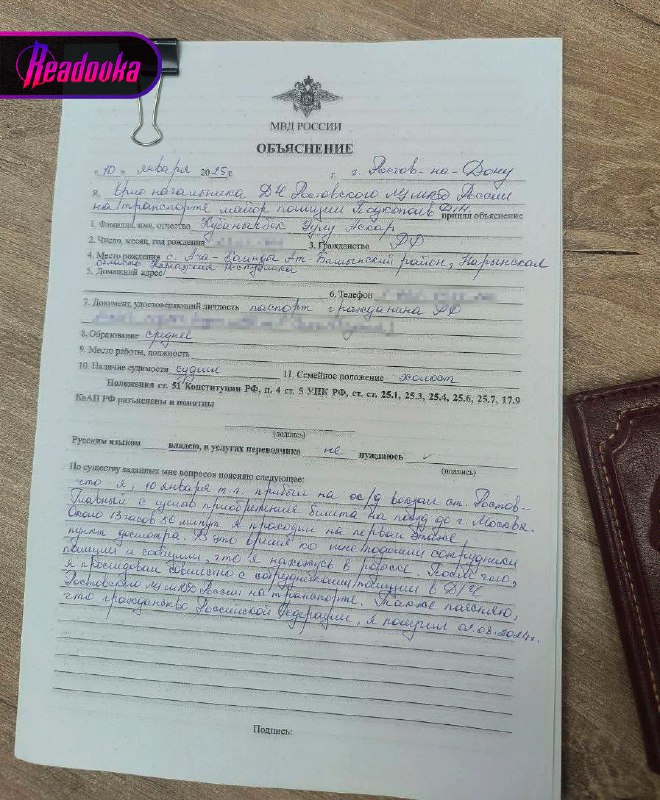 Readovka
МВД РОССИИ
ОБЪЯСНЕНИЕ
"10" января 2025г. г. Ростов-на-Дону
Я, Врио начальника ДЧ Ростовского ЛУ МВД России
на транспорте майор полиции принял объяснение
1. Фамилия, имя, отчество Кубанычбек Уулу Аскар
2. Число, месяц, год рождения 3. Гражданство РФ
4. Место рождения с. Ача-Каинды Ат-Башынский район, Нарынская
область Киргизская Республика
5. Домашний адрес
6. Телефон
7. Документ, удостоверяющий личность паспорт гражданина РФ
8. Образование среднее
9. Место работы, должность
10. Наличие судимости судим 11. Семейное положение холост
Положения ст. 51 Конституции РФ, п. 4 ст. 5 УПК РФ, ст. ст. 25.1, 25.3, 25.4, 25.6, 25.7, 17.9
КоАП РФ разъяснены и понятны
(подпись)
Русским языком владею, в услугах переводчика не нуждаюсь ✓
(подпись)
По существу заданных мне вопросов поясняю следующее:
что я, 10 января т.г. прибыл на ж/д вокзал ст. Ростов-
Главный с целью приобретения билета на поезд до г. Москвы.
Около 13 часов 50 минут я проходил на первом этаже
пункт досмотра. В это время ко мне подошли сотрудники
полиции и сообщили, что я нахожусь в розыске. После чего,
я проследовал совместно с сотрудниками полиции в ДЧ
Ростовского ЛУ МВД России на транспорте. Также поясняю,
что гражданство Российской Федерации, я получил 02.08.2024г.
Подпись: